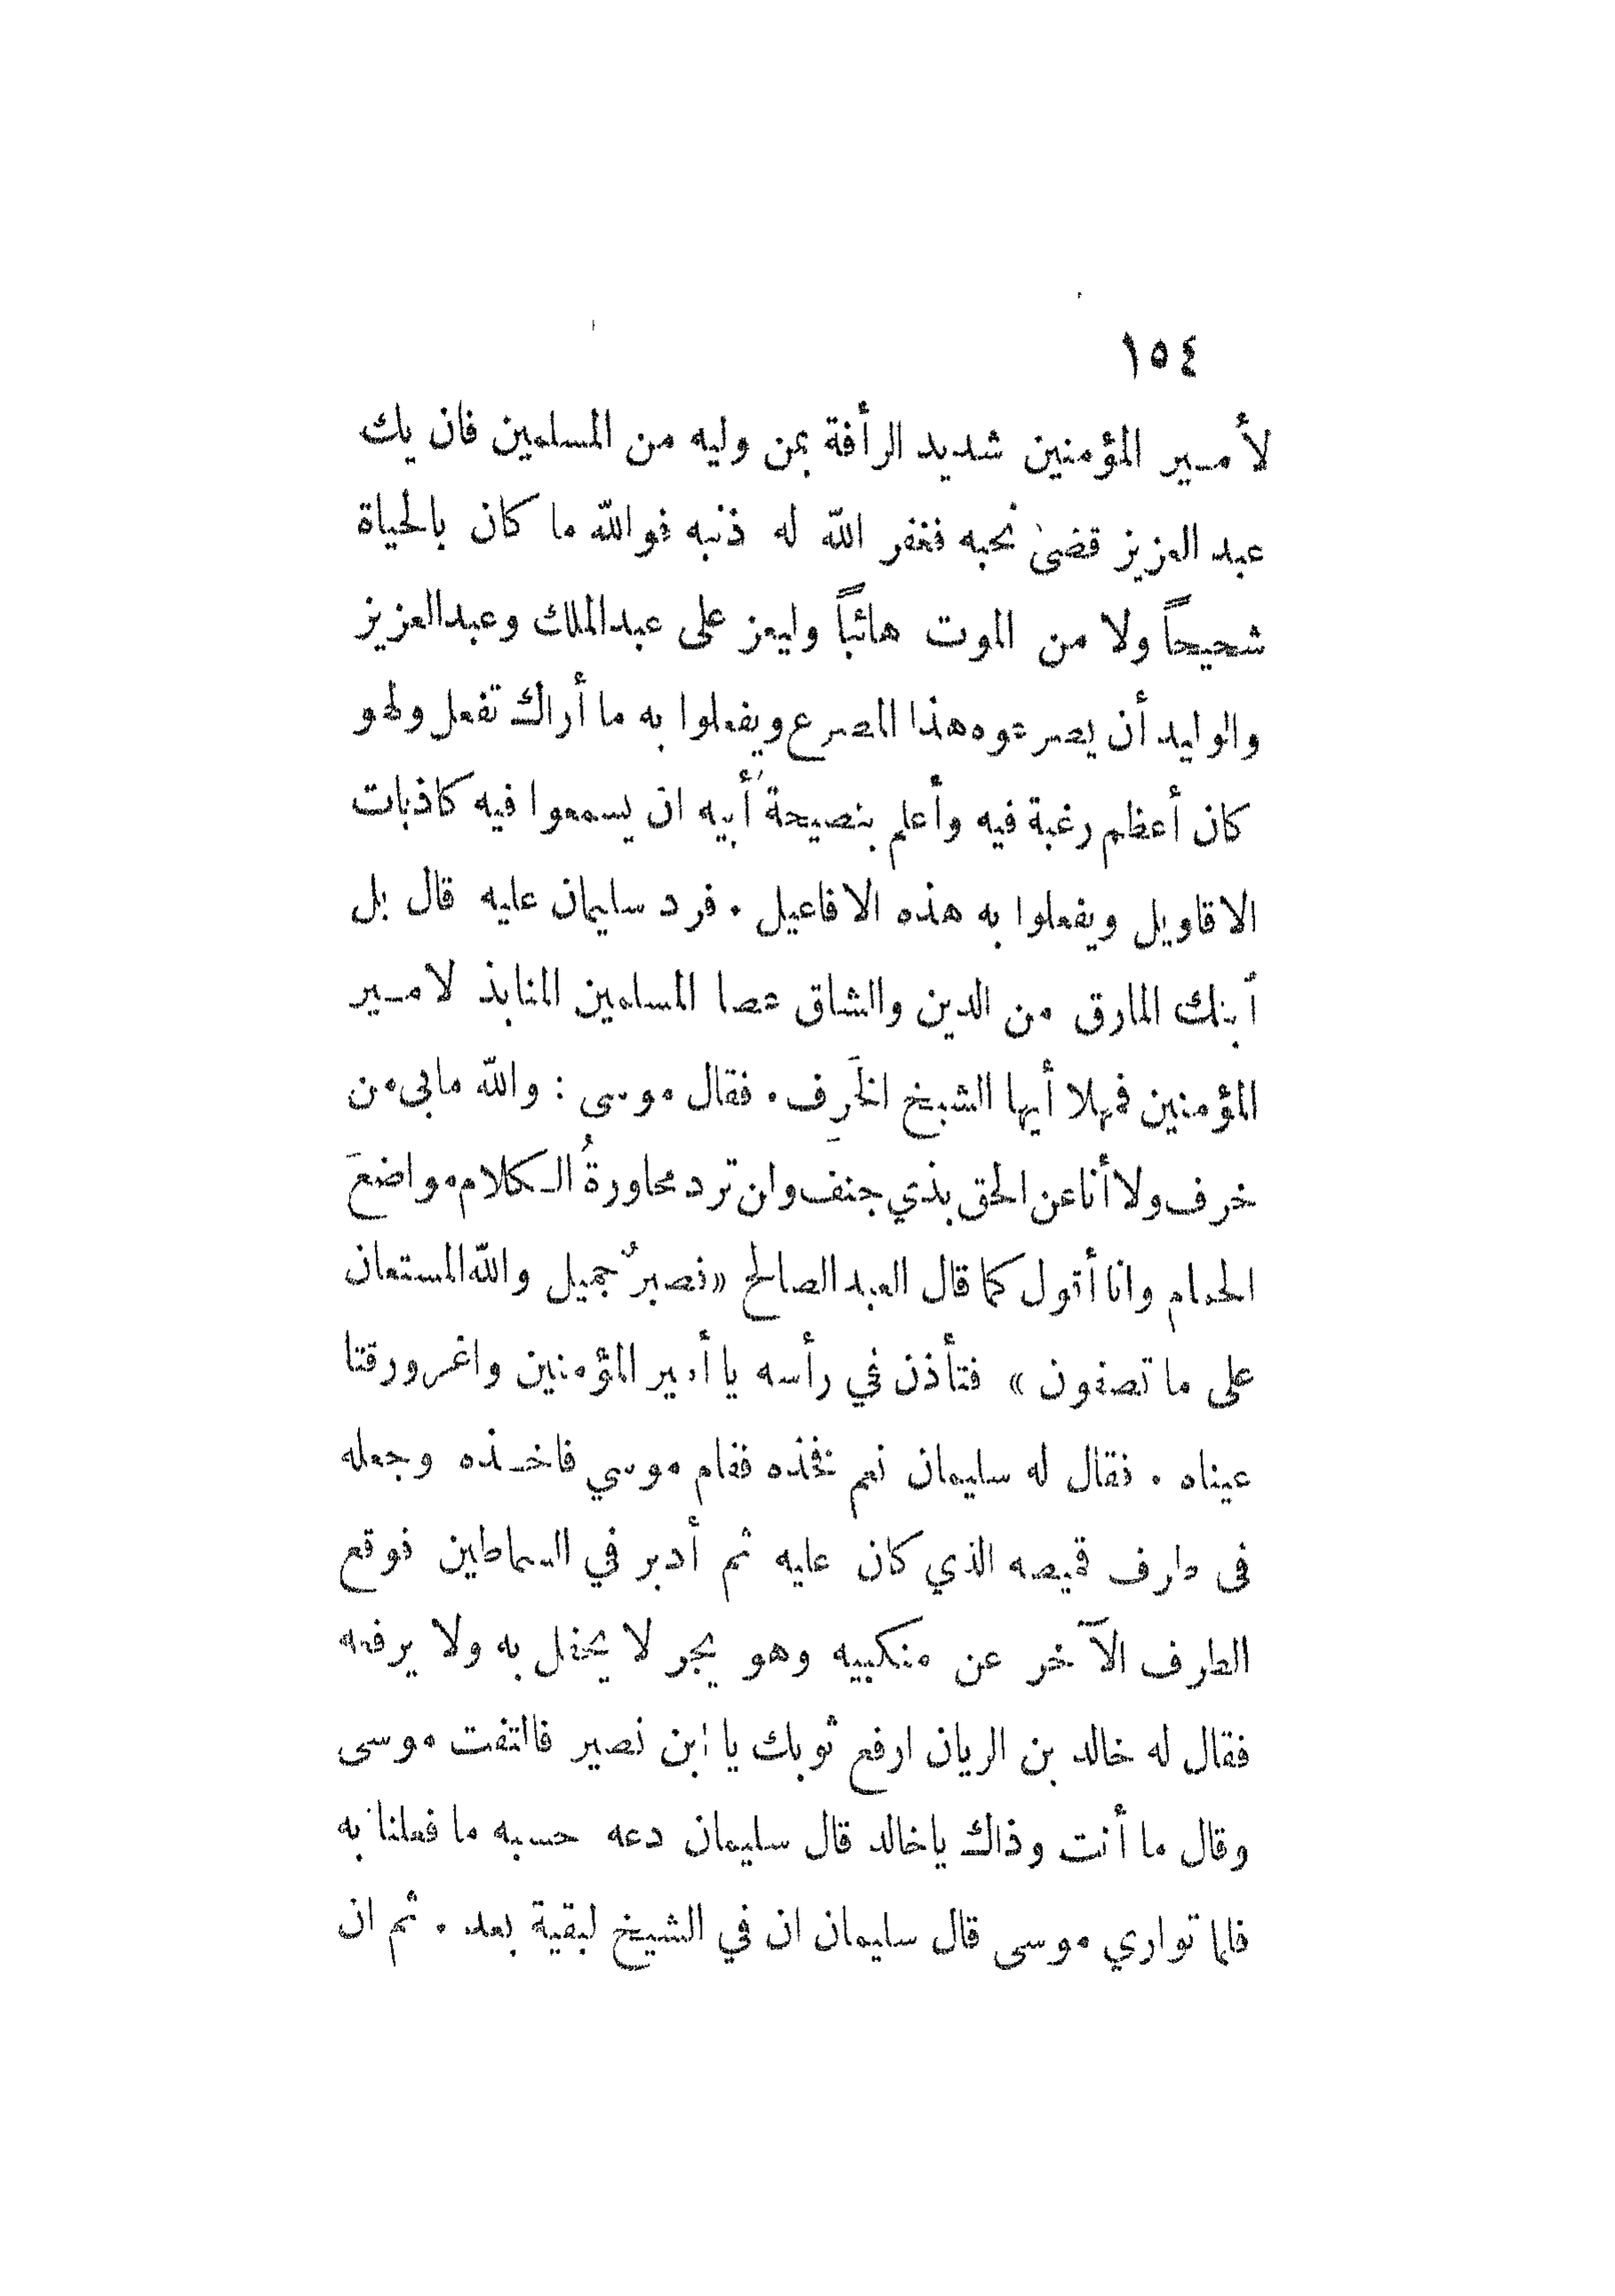 ١٥٤
لأمير المؤمنين شديد الرأفة بمن وليه من المسلمين فان يك
عبد العزيز قضىٰ نحبه فغفر الله له ذنبه فوالله ما كان بالحياة
شحيحاً ولا من الموت هائباً وليعز على عبدالملك وعبدالعزيز
والوليد أن يصرعوه هذا المصرع ويفعلوا به ما أراك تفعل ولهو
كان أعظم رغبة فيه وأعلم بنصيحة أبيه ان يسمعوا فيه كاذبات
الاقاويل ويفعلوا به هذه الافاعيل . فرد سليمان عليه قال بل
ابنك المارق من الدين والشاق عصا المسلمين المنابذ لامير
المؤمنين فمهلا أيها الشيخ الخَرِف . فقال موسى : والله مابى من
خرف ولا أنا عن الحق بذي جنف وان ترد محاورةُ الكلام مواضعَ
الحمام وانا أقول كما قال العبد الصالح «فصبرٌ جميل والله المستعان
على ما تصفون » فتأذن في رأسه يا أمير المؤمنين واغرورقتا
عيناه . فقال له سليمان نعم فخذه فقام موسي فاخذه وجعله
فى طرف قميصه الذي كان عليه ثم أدبر في السماطين فوقع
الطرف الآخر عن منكبيه وهو يجر لا يحفل به ولا يرفعه
فقال له خالد بن الريان ارفع ثوبك يا ابن نصير فالتفت موسى
وقال ما أنت وذاك ياخالد قال سليمان دعه حسبه ما فعلنا به
فلما تواري موسى قال سليمان ان في الشيخ لبقية بعد . ثم ان